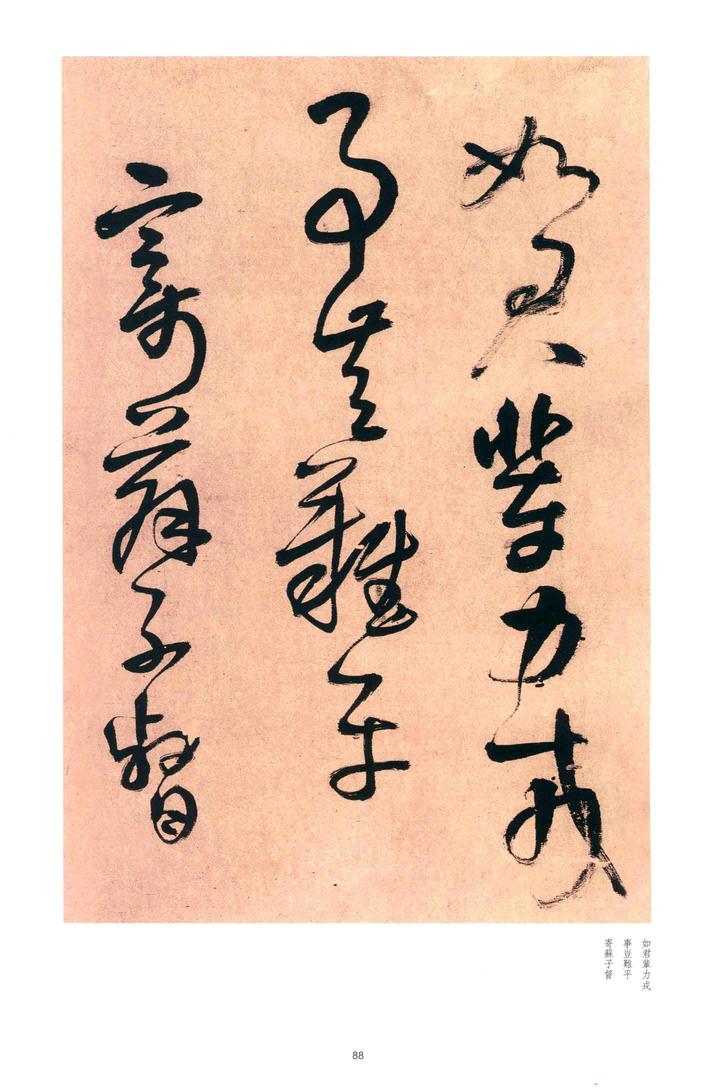 如君輩力戎
事豈難平
寄蘇子督
如君輩力戎
事豈難平
寄蘇子督
88